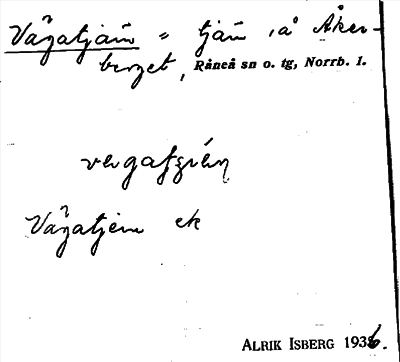 Vågatjärn = tjärn å Åker-
berget, Råneå sn o. tg, Norrb. l.
Vågatjern ek
ALRIK ISBERG 1936.